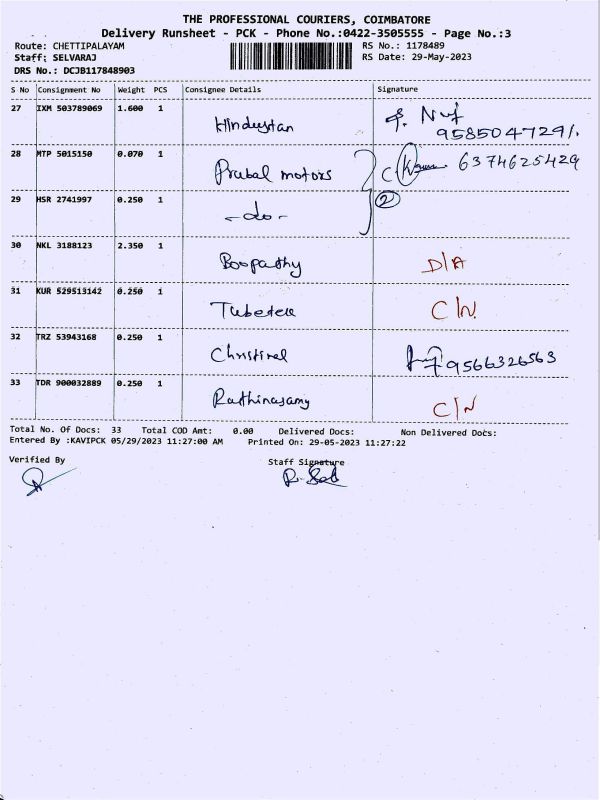 THE PROFESSIONAL COURIERS, COIMBATORE
Delivery Runsheet - PCK - Phone No.:0422-3505555 - Page No.:3
Route: CHETTIPALAYAM RS No.: 1178489
Staff: SELVARAJ RS Date: 29-May-2023
DRS No.: DCJB117848903
S No Consignment No Weight PCS Consignee Details Signature
27 IXM 503789069 1.600 1 Hindustan 9585047291.
28 MTP 5015150 0.070 1 Prabal motors 6374625429
29 HSR 2741997 0.250 1 -do- 2
30 NKL 3188123 2.350 1 Boopathy D/A
31 KUR 529513142 0.250 1 C/N.
32 TRZ 53943168 0.250 1 9566326563
33 TDR 900032889 0.250 1 Rathinasamy C/N
Total No. Of Docs: 33 Total COD Amt: 0.00 Delivered Docs: Non Delivered Docs:
Entered By :KAVIPCK 05/29/2023 11:27:00 AM Printed On: 29-05-2023 11:27:22
Verified By Staff Signature